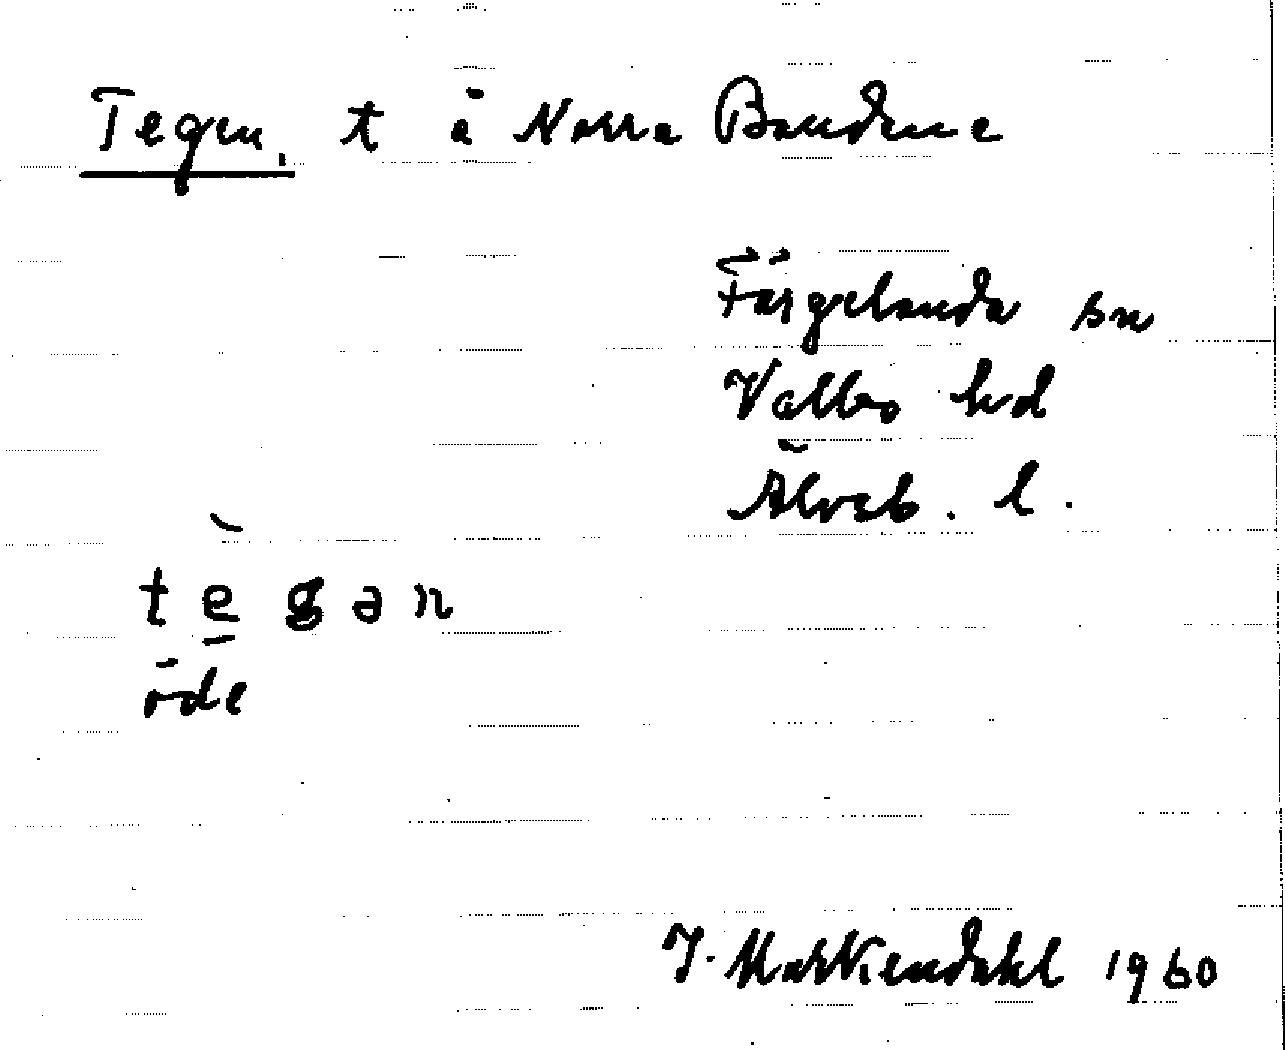 Tegen, t å Norra Bondene
Färgelanda sn
Valbo hd
Älvsb. l.
tègən
öde
I. Markendahl 1960